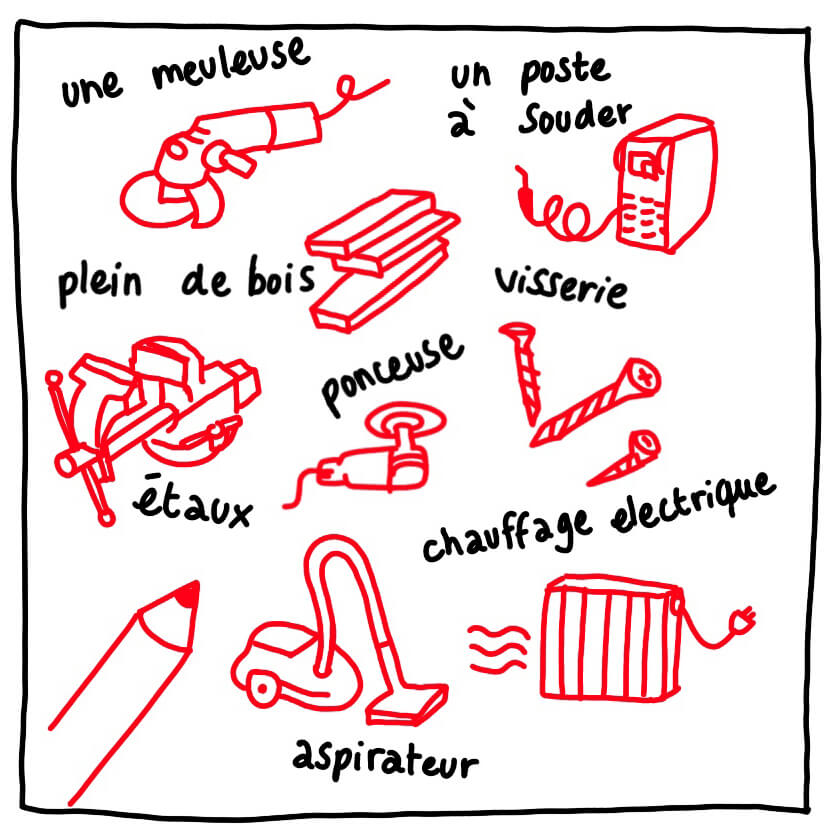 une meuleuse
un poste
à souder
plein de bois
visserie
ponceuse
étaux
chauffage electrique
aspirateur